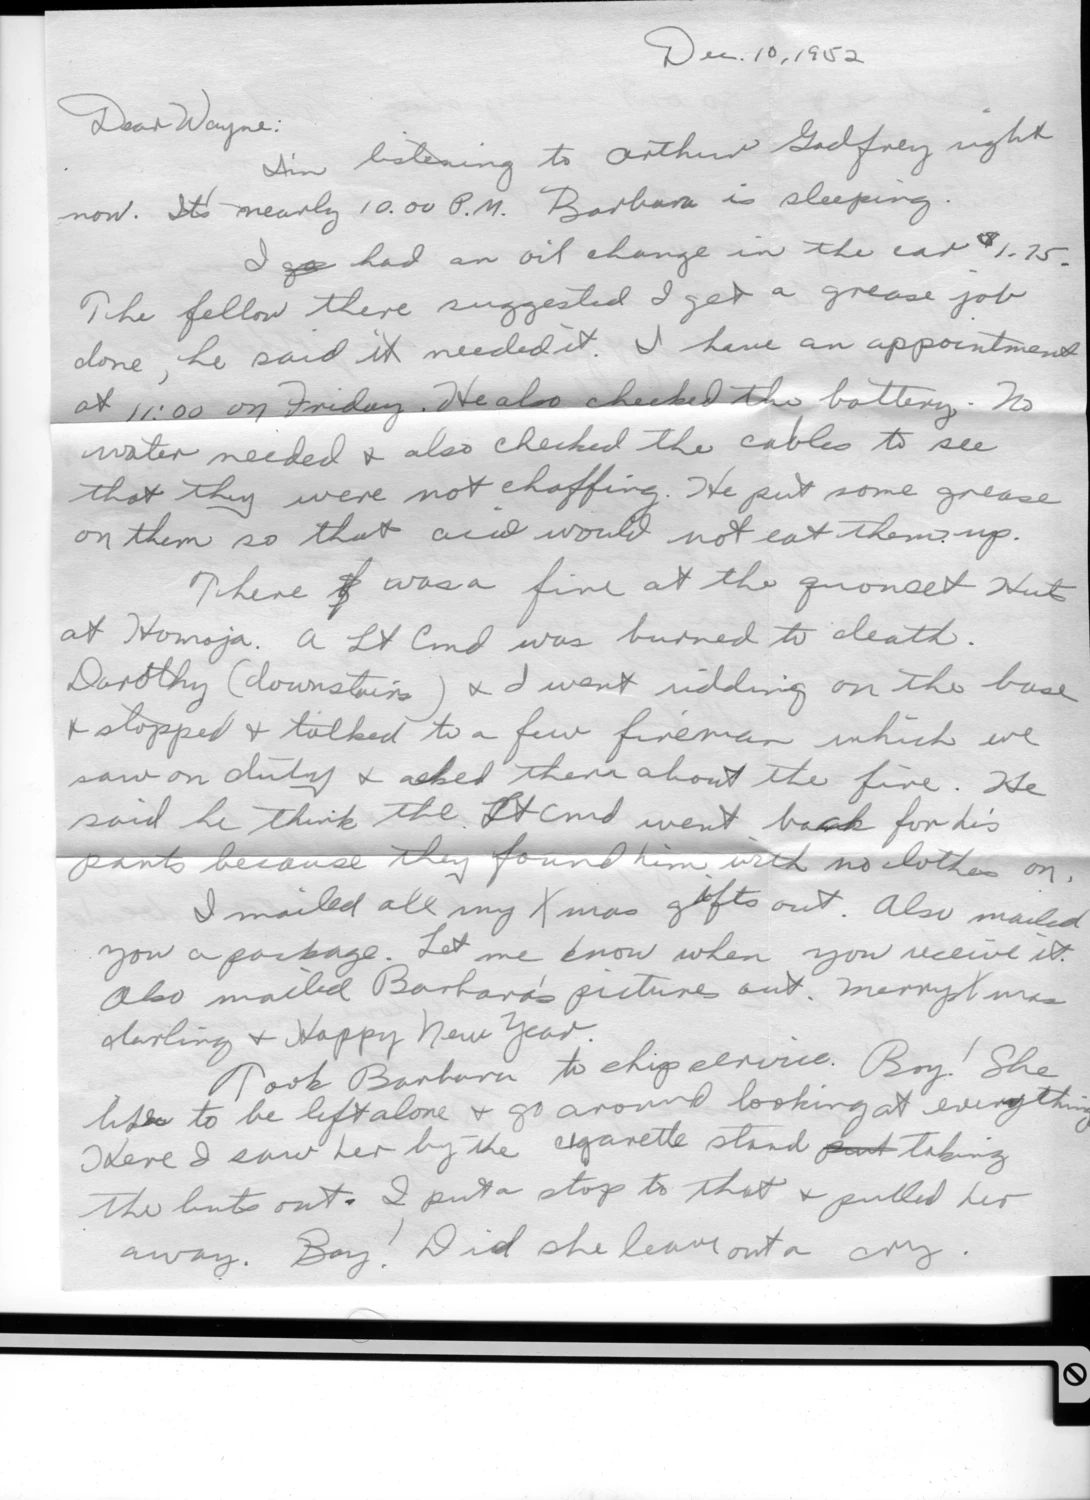 Dec. 10, 1952
Dear Wayne:
I'm listening to Arthur Godfrey right
now. It's nearly 10.00 P.M. Barbara is sleeping.
I go had an oil change in the car $1.75.
The fellow there suggested I get a grease job
done, he said it needed it. I have an appointment
at 11:00 on Friday. He also checked the battery. No
water needed & also checked the cables to see
that they were not chaffing. He put some grease
on them so that acid would not eat them up.
There was a fire at the quonset Huts
at Homoja. A Lt Cmd was burned to death.
Dorothy (downstairs) & I went ridding on the base
& stopped & talked to a few fireman which we
saw on duty & asked them about the fire. He
said he think the Lt Cmd went back for his
pants because they found him with no clothes on.
I mailed all my Xmas gifts out. Also mailed
you a package. Let me know when you receive it.
Also mailed Barbara's pictures out. Merry Xmas
darling & Happy New Year.
Took Barbara to ship service. Boy! She
likes to be left alone & go around looking at everything
Here I saw her by the cigarette stand put taking
the buts out. I put a stop to that & pulled her
away. Boy! Did she leave out a cry.